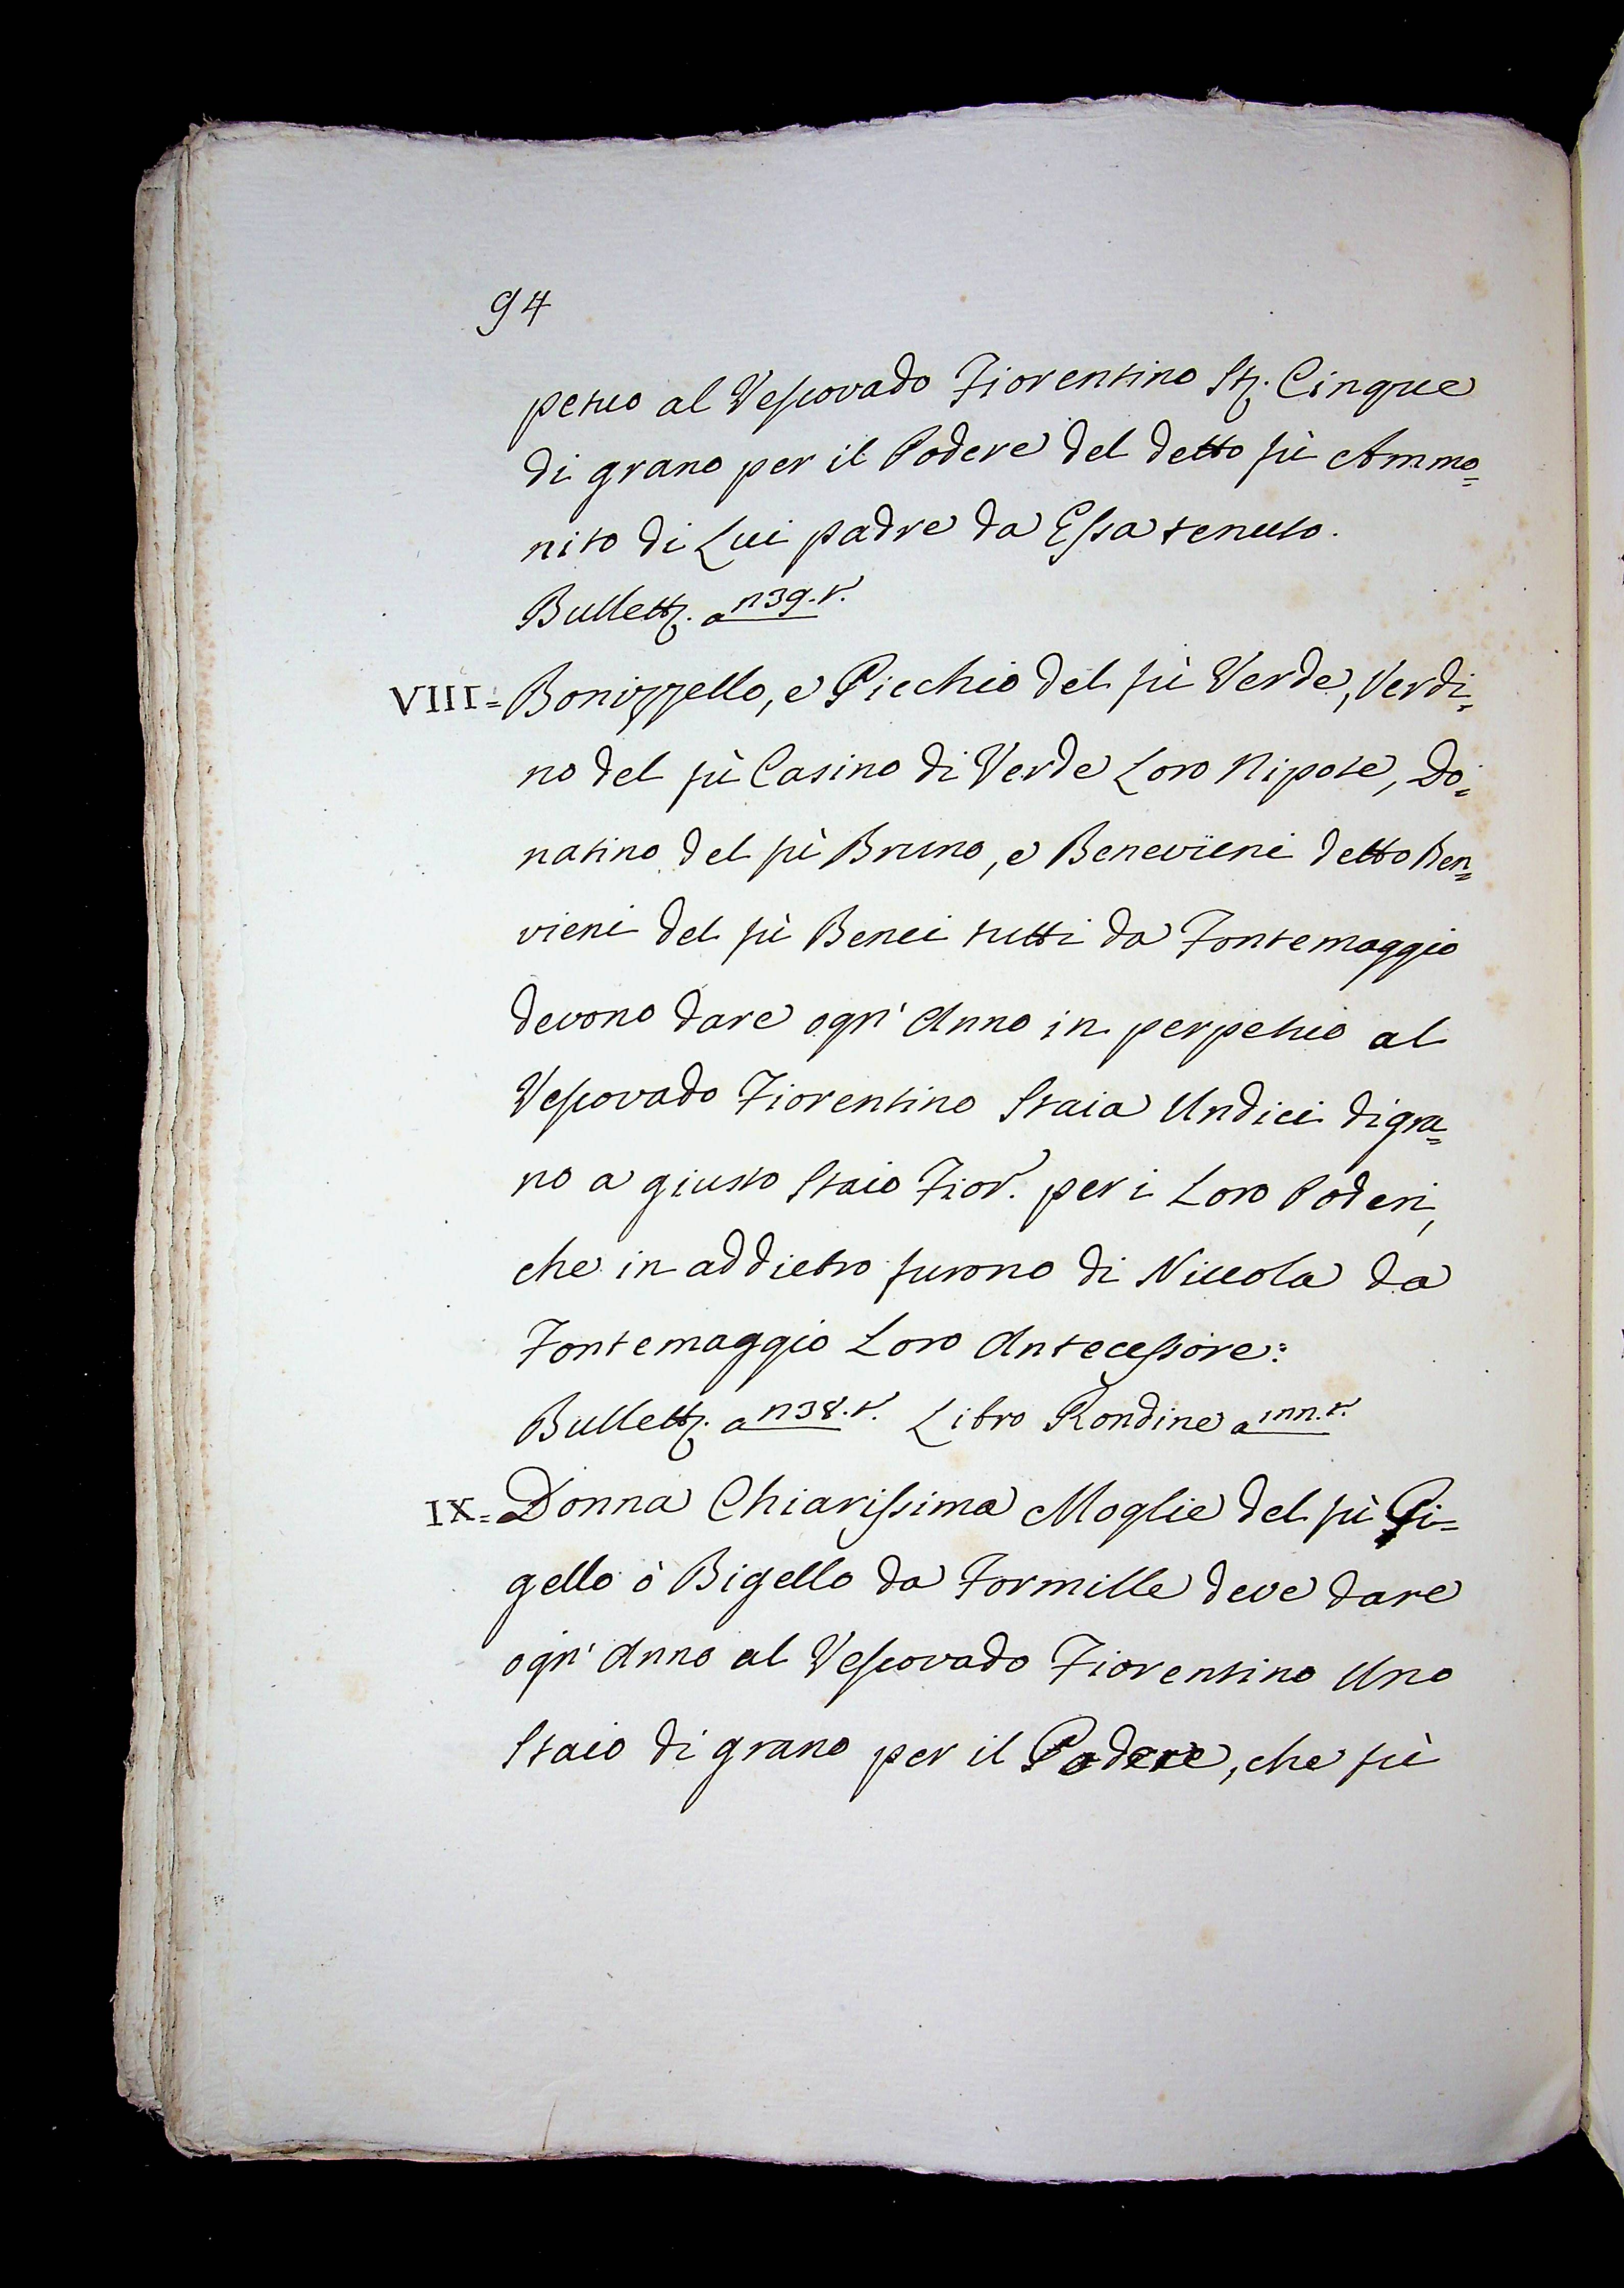 94
petuo al Vescovado Fiorentino St. Cinque
di grano per il Podere del detto fù Ammo=
nito di Lui padre da Essa tenuto.
Bullett. a 139. r.
VIII= Bonizzello, e Picchio del fù Verde, Verdi=
no del fù Casino di Verde Loro Nipote, Do=
natino del fù Bruno, e Benevieni detto Ben=
vieni del fù Benci tutti da Fontemaggio
devono dare ogn' Anno in perpetuo al
Vescovado Fiorentino Staia Undici di gra=
no a giusto Staio Fior. per i Loro Poderi,
che in addietro furono di Niccola da
Fontemaggio Loro Antecessore:
Bullett. a 138. r. Libro Rondine a 111. r.
IX= Donna Chiarissima Moglie del fù Pi=
gello ò Bigello da Formille deve dare
ogn' Anno al Vescovado Fiorentino Uno
Staio di grano per il Podere, che fù